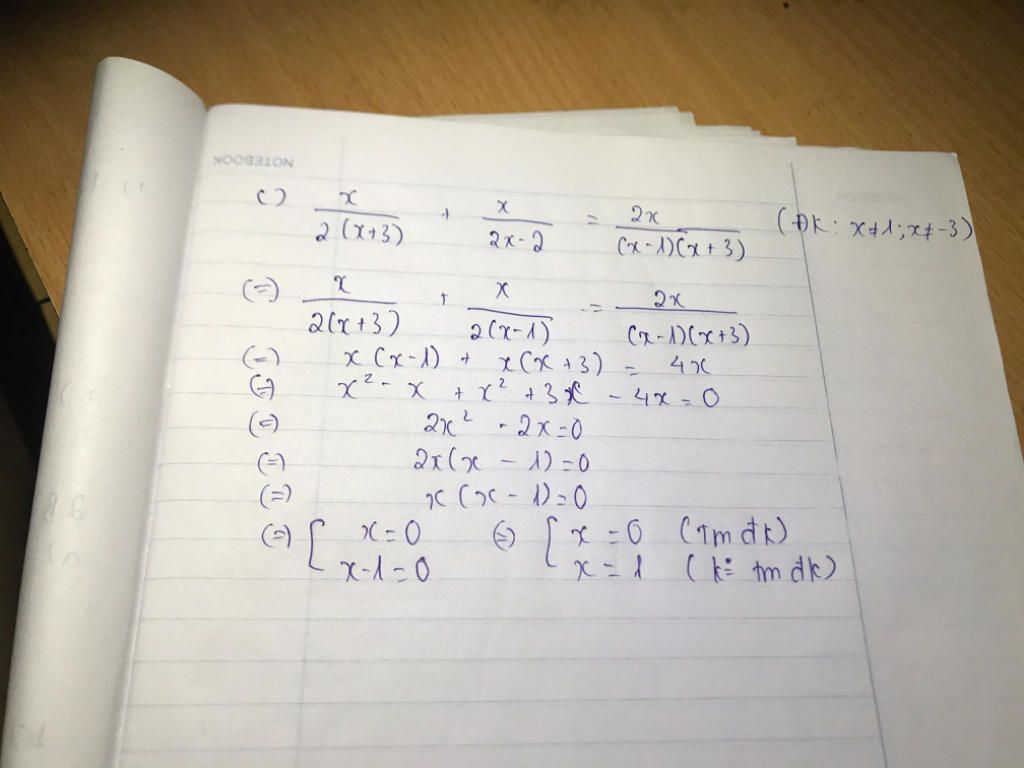 NOTEBOOK
c) x/(2(x+3)) + x/(2x-2) = 2x/((x-1)(x+3)) (ĐK: x≠1; x≠-3)
(=) x/(2(x+3)) + x/(2(x-1)) = 2x/((x-1)(x+3))
(=) x(x-1) + x(x+3) = 4x
(=) x² - x + x² + 3x - 4x = 0
(=) 2x² - 2x = 0
(=) 2x(x - 1) = 0
(=) x(x - 1) = 0
(=) [ x = 0 (=) [ x = 0 (Tm đk)
x-1 = 0 x = 1 (k: tm đk)